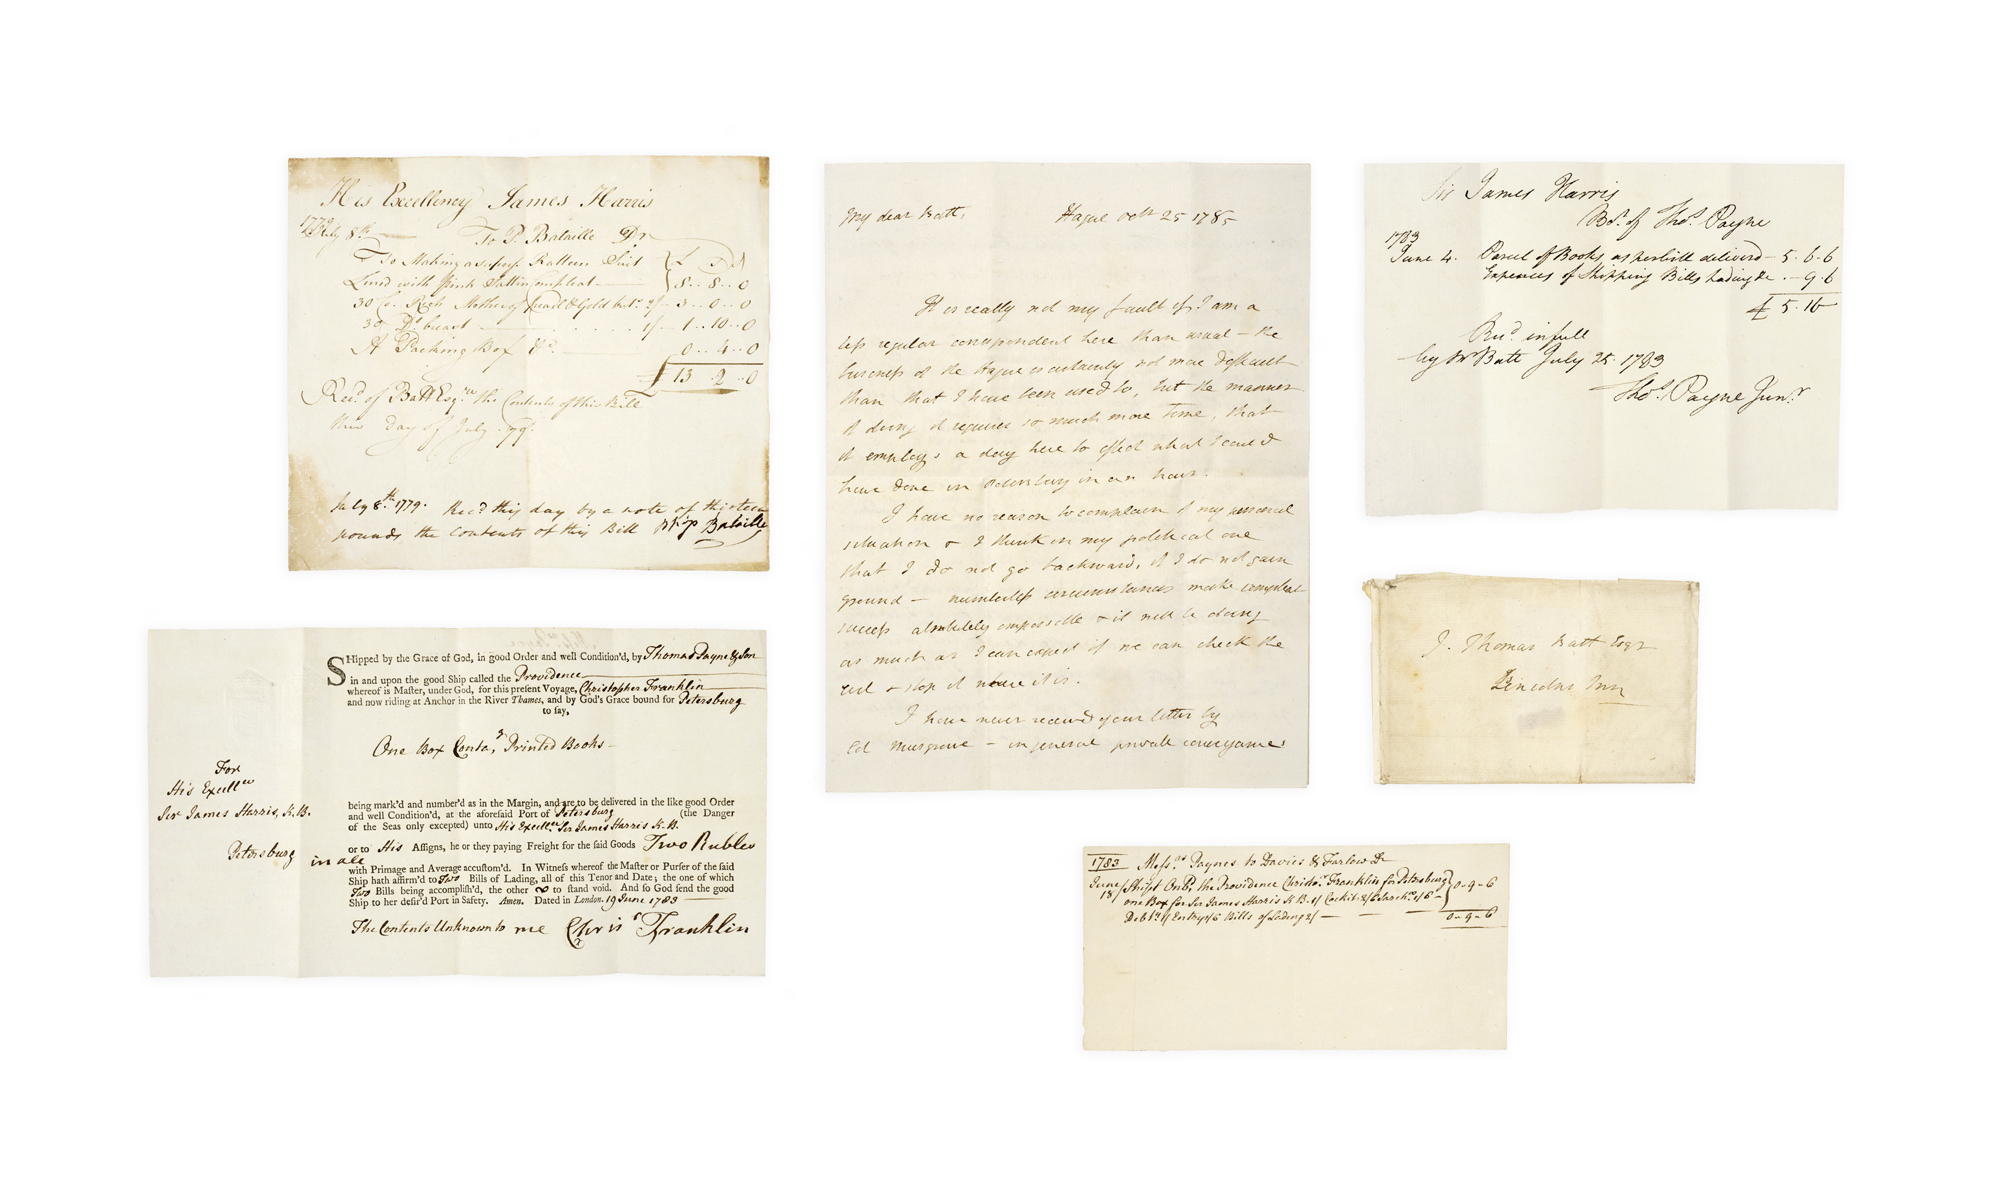 His Excellency James Harris
1779 July 8th To P. Bataille Dr
To Making a superfe Ratteen Suit £ S D
Lined with Pink Sattin compleat 8..8..0
30 Co. Rich Mother of Pearl & Gold butns 2/- 3..0..0
30 Do breast 1/- 1..10..0
A Packing Box &c. 0..4..0
£ 13..2..0
Recd of Batt Esqre the Contents of this Bill
this Day of July 79
July 8th 1779. Recd this day by a note of thirteen
pounds the contents of this Bill Php Bataille
Shipped by the Grace of God, in good Order and well Condition'd, by Thomas Payne & Son
in and upon the good Ship called the Providence
whereof is Master, under God, for this present Voyage, Christopher Franklin
and now riding at Anchor in the River Thames, and by God's Grace bound for Petersburg
to say,
One Box Contag Printed Books
For
His Excellcy
Sir James Harris, K.B.
Petersburg
being mark'd and number'd as in the Margin, and are to be delivered in the like good Order
and well Condition'd, at the aforesaid Port of Petersburg (the Danger
of the Seas only excepted) unto His Excellcy Sir James Harris K.B.
or to His Assigns, he or they paying Freight for the said Goods Two Rubles
in all
with Primage and Average accustom'd. In Witness whereof the Master or Purser of the said
Ship hath affirm'd to Two Bills of Lading, all of this Tenor and Date; the one of which
Two Bills being accomplish'd, the other to stand void. And so God send the good
Ship to her desir'd Port in Safety. Amen. Dated in London. 19 June 1783
The Contents Unknown to me Chrisr Franklin
My dear Batt, Hague Octr 25 1785
It is really not my fault if I am a
less regular correspondent here than usual – the
business of the Hague is certainly not more difficult
than that I have been used to, but the manner
of doing it requires so much more time, that
it employs a day here to effect what I could
have done in Petersburg in an hour.
I have no reason to complain of my personal
situation & I think in my political one
that I do not go backward, if I do not gain
ground – numberless circumstances make compleat
success absolutely impossible & it will be doing
as much as I can expect if we can check the
evil & stop it where it is.
I have never received your letter by
Col Musgrave – in general private conveyances
Sir James Harris
Bot of Thos. Payne
1783
June 4. Parcel of Books as per bill deliverd – 5.6.6
Expences of Shipping Bills Lading &c – 9.6
£ 5.16
Recd in full
by Mr Batt July 25. 1783
Thos. Payne Junr
J. Thomas Batt Esqr
Lincolns Inn
1783 Messrs Paynes to Davies & Farlow Dr
June 18 / Shipt On Bd the Providence Christor Franklin for Petersburg 0-9-6
one Box for Sir James Harris K.B. 1/ Cockit 2/6 Searchrs 1/6
Debtre 1/ Entry 1/6 Bills of Lading 2/ 0-9-6